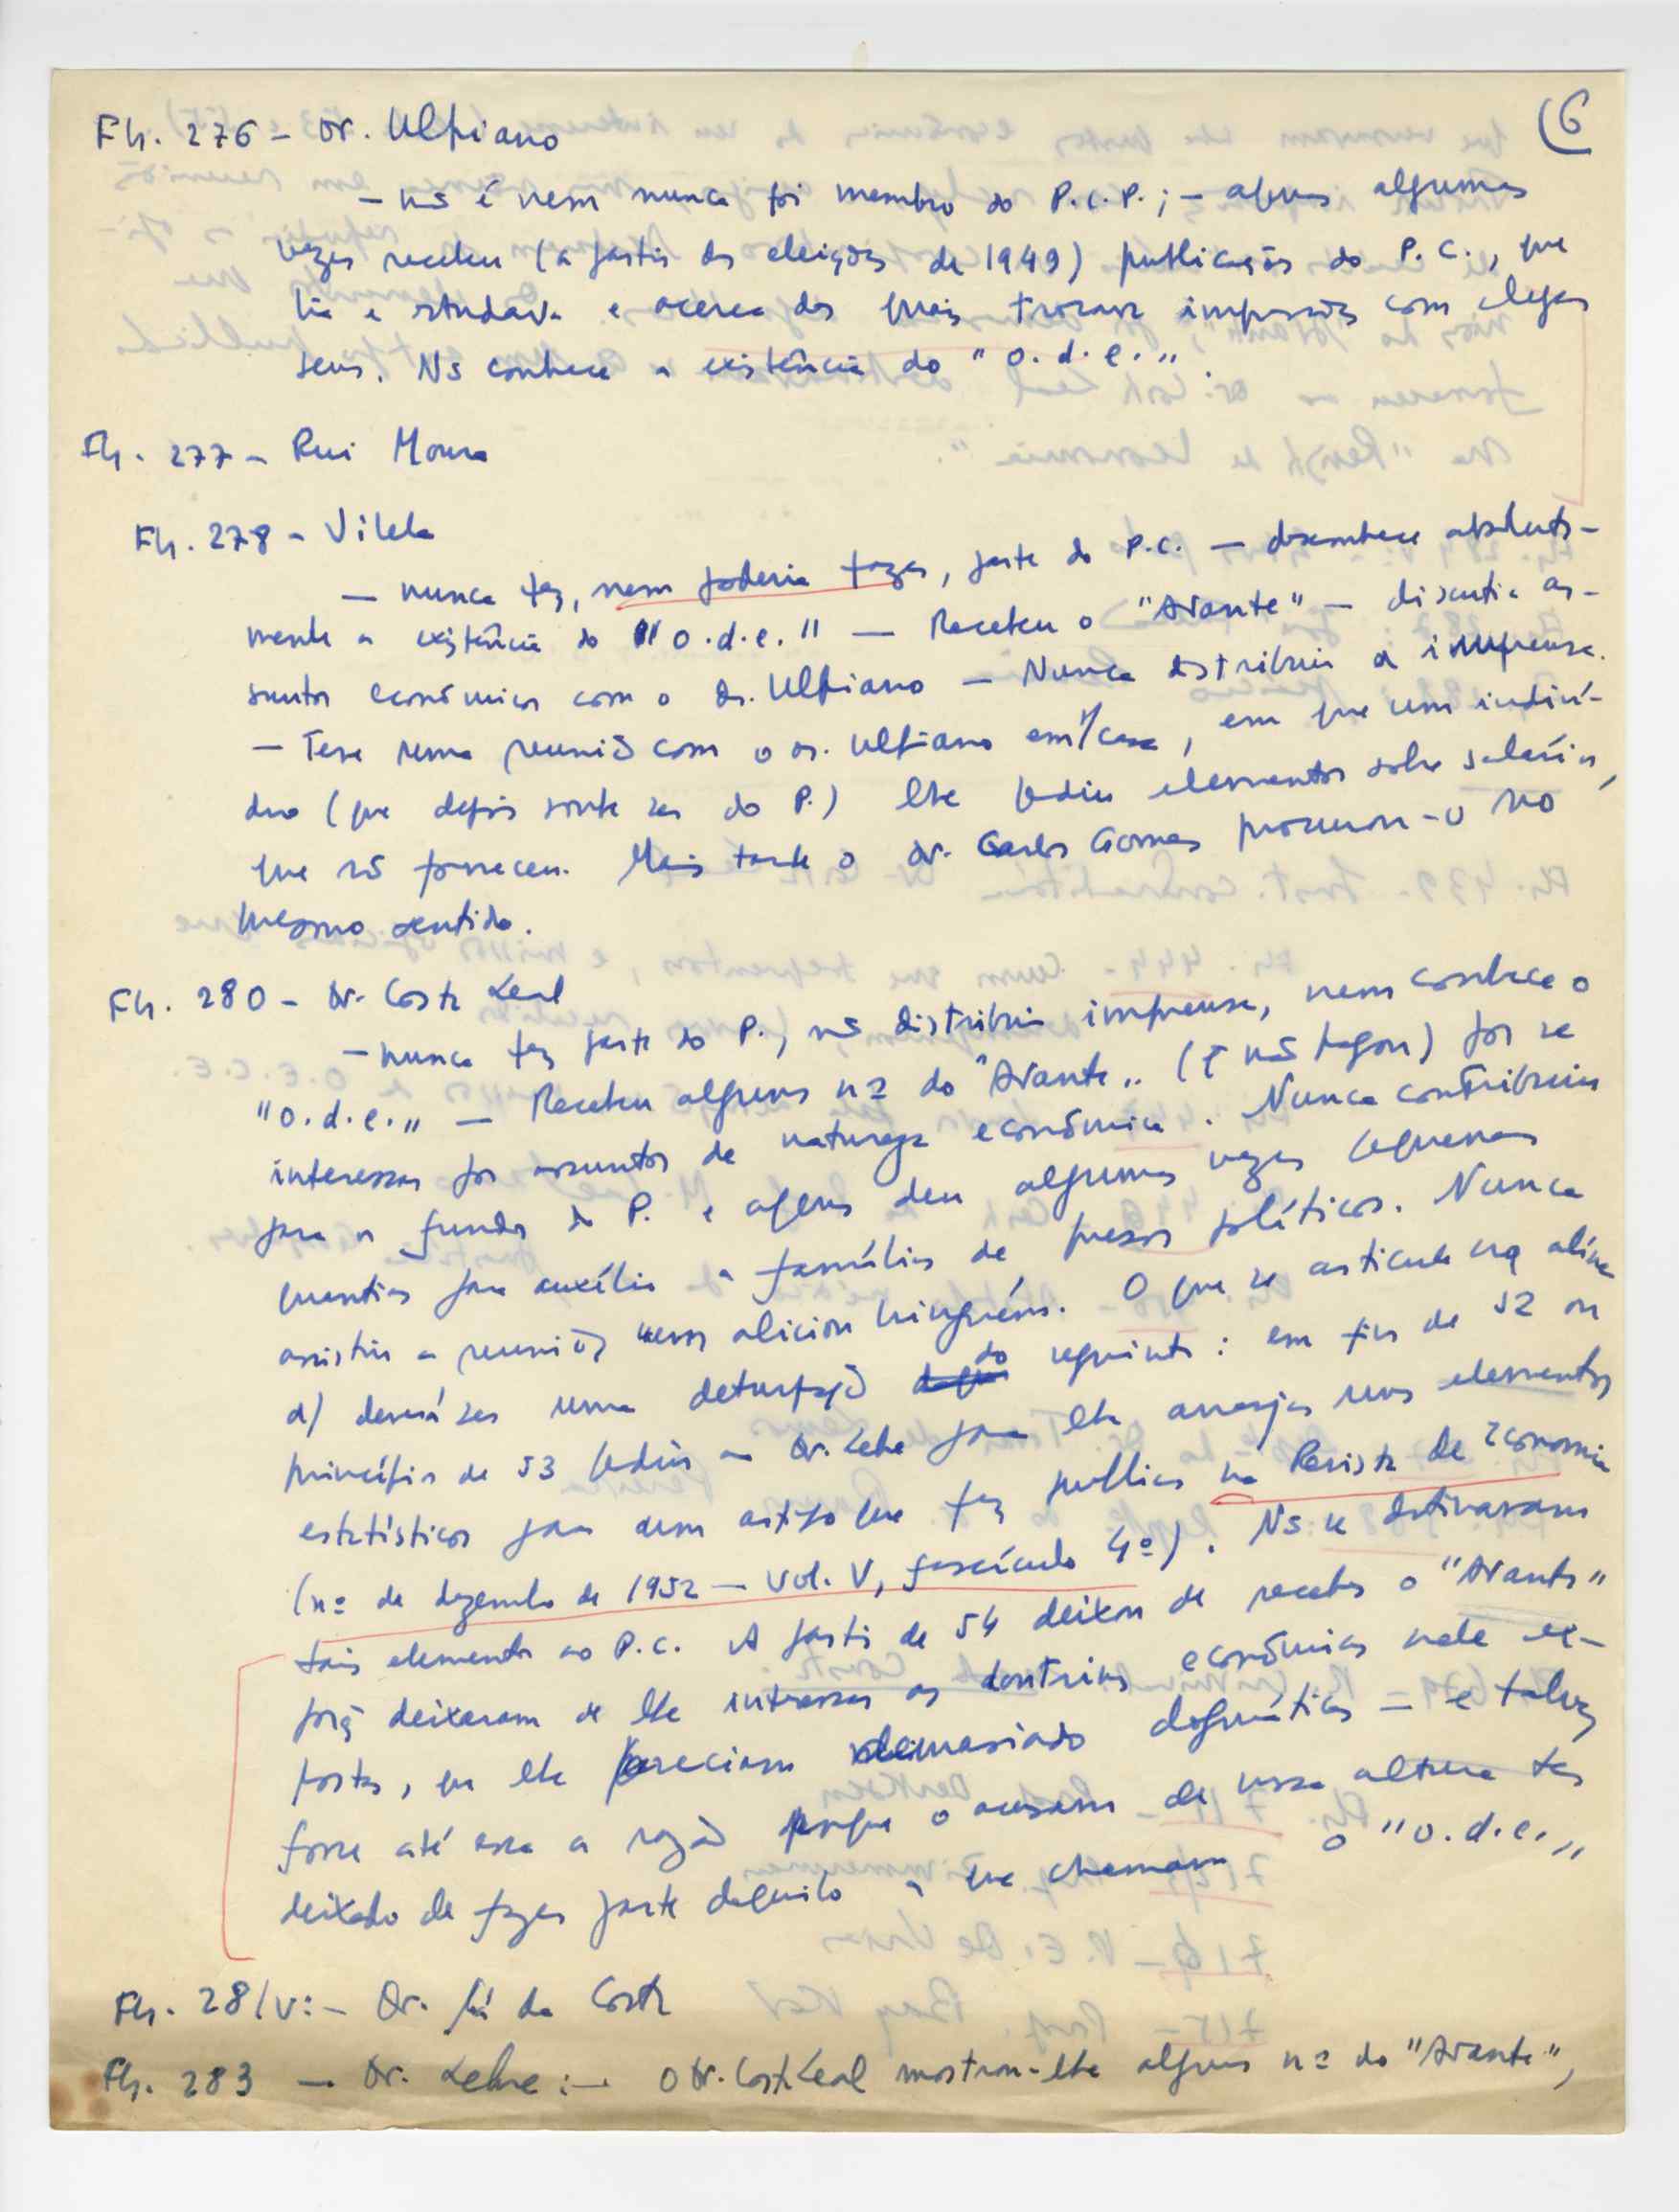 (6
Fh. 276 - Dr. Ulpiano
- não é nem nunca foi membro do P.C.P.; - apenas algumas
vezes recebeu (a partir das eleições de 1949) publicações do P.C., que
lia e estudava e acerca das quais trocava impressões com colegas
seus. Não conhece a existência do "o.d.e.".
Fh. 277 - Rui Moura
Fh. 278 - Vilela
- nunca fez, nem poderia fazer, parte do P.C. - desconhece absoluta-
mente a existência do "o.d.e." - Recebeu o "Avante" - discutia as-
suntos económicos com o dr. Ulpiano - Nunca distribuiu a imprensa.
- Teve uma reunião com o dr. Ulpiano em s/casa, em que um indiví-
duo (que depois soube ser do P.) lhe pediu elementos sobre salários,
que não forneceu. Mais tarde o dr. Carlos Gomes procurou-o no
mesmo sentido.
Fh. 280 - Dr. Costa Leal
- nunca fez parte do P., não distribuiu imprensa, nem conhece o
"o.d.e." - Recebeu alguns nº do "Avante" (q não pagou) por se
interessar por assuntos de natureza económica. Nunca contribuiu
para os fundos do P. e apenas deu algumas vezes pequenas
quantias para auxílio a famílias de presos políticos. Nunca
assistiu a reuniões nem aliciou ninguém. O que se articula na alínea
d) deverá ser uma deturpação do seguinte: em fins de 52 ou
princípios de 53 pediu ao Dr. Lebre para lhe arranjar uns elementos
estatísticos para um artigo que fez publicar na Revista de Economia
(nº de dezembro de 1952 - Vol. V, fascículo 4º). Não se destinavam
tais elementos ao P.C. A partir de 54 deixou de receber o "Avante"
porq deixaram de lhe interessar as doutrinas económicas nele ex-
postas, que lhe pareciam demasiado dogmáticas - e talvez
fosse até essa a razão porque o acusam de nessa altura ter
deixado de fazer parte daquilo a que chamam o "o.d.e."
Fh. 281v: - Dr. Sá da Costa
Fh. 283 - Dr. Lebre: - O Dr. Costa Leal mostrou-lhe alguns nº do "Avante",